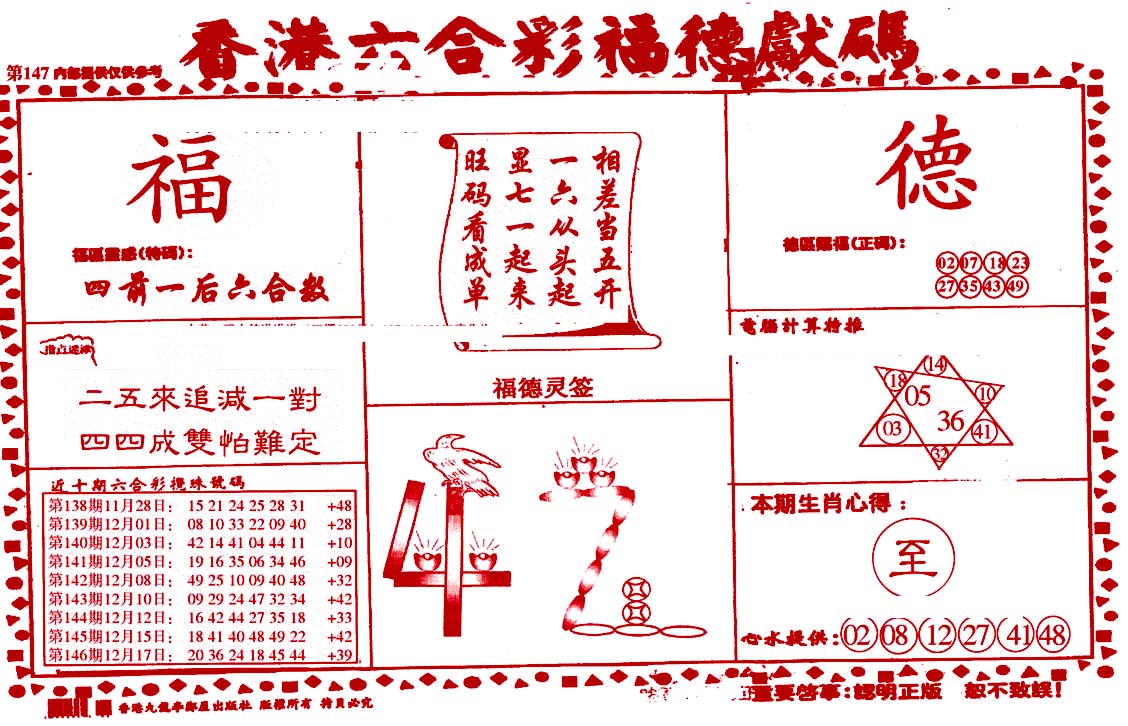 香港六合彩福德獻碼
第147 内部提供仅供参考
福
福區靈感(特碼)：
四前一后六合数
指点迷津
二五來追减一對
四四成雙怕難定
近十期六合彩攪珠號碼
第138期11月28日： 15 21 24 25 28 31 +48
第139期12月01日： 08 10 33 22 09 40 +28
第140期12月03日： 42 14 41 04 44 11 +10
第141期12月05日： 19 16 35 06 34 46 +09
第142期12月08日： 49 25 10 09 40 48 +32
第143期12月10日： 09 29 24 47 32 34 +42
第144期12月12日： 16 42 44 27 35 18 +33
第145期12月15日： 18 41 40 48 49 22 +42
第146期12月17日： 20 36 24 18 45 44 +39
相差当五开
一六从头起
显七一起来
旺码看成单
福德灵签
42
德
德區賜福(正碼)：
02 07 18 23
27 35 43 49
電腦計算特推
14
18 05 10
03 36 41
32
本期生肖心得：
至
心水提供：02 08 12 27 41 48
重要啓事：認明正版 恕不致誤！
香港九龍半鄰屋出版社 版權所有 拷貝必究